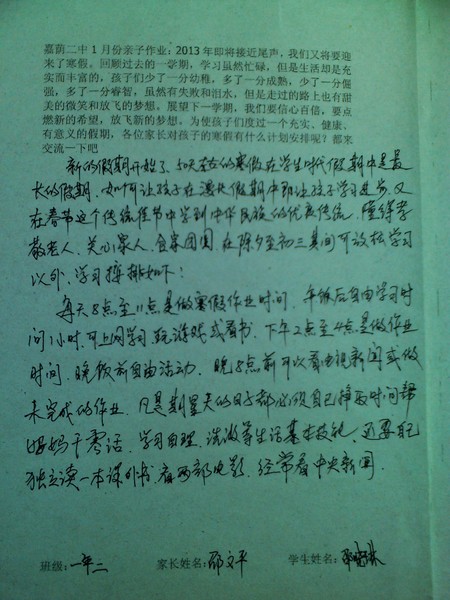 嘉荫二中1月份亲子作业：2013年即将接近尾声，我们又将要迎
来了寒假。回顾过去的一学期，学习虽然忙碌，但是生活却是充
实而丰富的，孩子们少了一分幼稚，多了一分成熟，少了一分倔
强，多了一分睿智，虽然有失败和泪水，但是走过的路上也有甜
美的微笑和放飞的梦想。展望下一学期，我们要信心百倍，要点
燃新的希望，放飞新的梦想。为使孩子们度过一个充实、健康、
有意义的假期，各位家长对孩子的寒假有什么计划安排呢？都来
交流一下吧
新的假期开始了、50天左右的寒假在学生时代假期中是最
长的假期．如何让孩子在漫长假期中即让孩子学习进步．又
在春节这个传统佳节中学到中华民族的优良传统．懂得孝
敬老人．关心家人．合家团圆．在除夕至初三其间可放松学习
以外．学习安排如下：
每天8点至11点是做寒假作业时间．午饭后自由学习时
间1小时．可上网学习．玩游戏或看书．下午2点至4点是做作业
时间．晚饭前自由活动．晚8点前可以看电视新闻或做
未完成的作业．凡是到星天的日子都必须自己挣两时间帮
妈妈干零活．学习自理．洗做等生活基本技能．还要自己
独立读一本课外书．看两部电影．经常看中央新闻．
班级：一年二 家长姓名：邵文平 学生姓名：邵琳